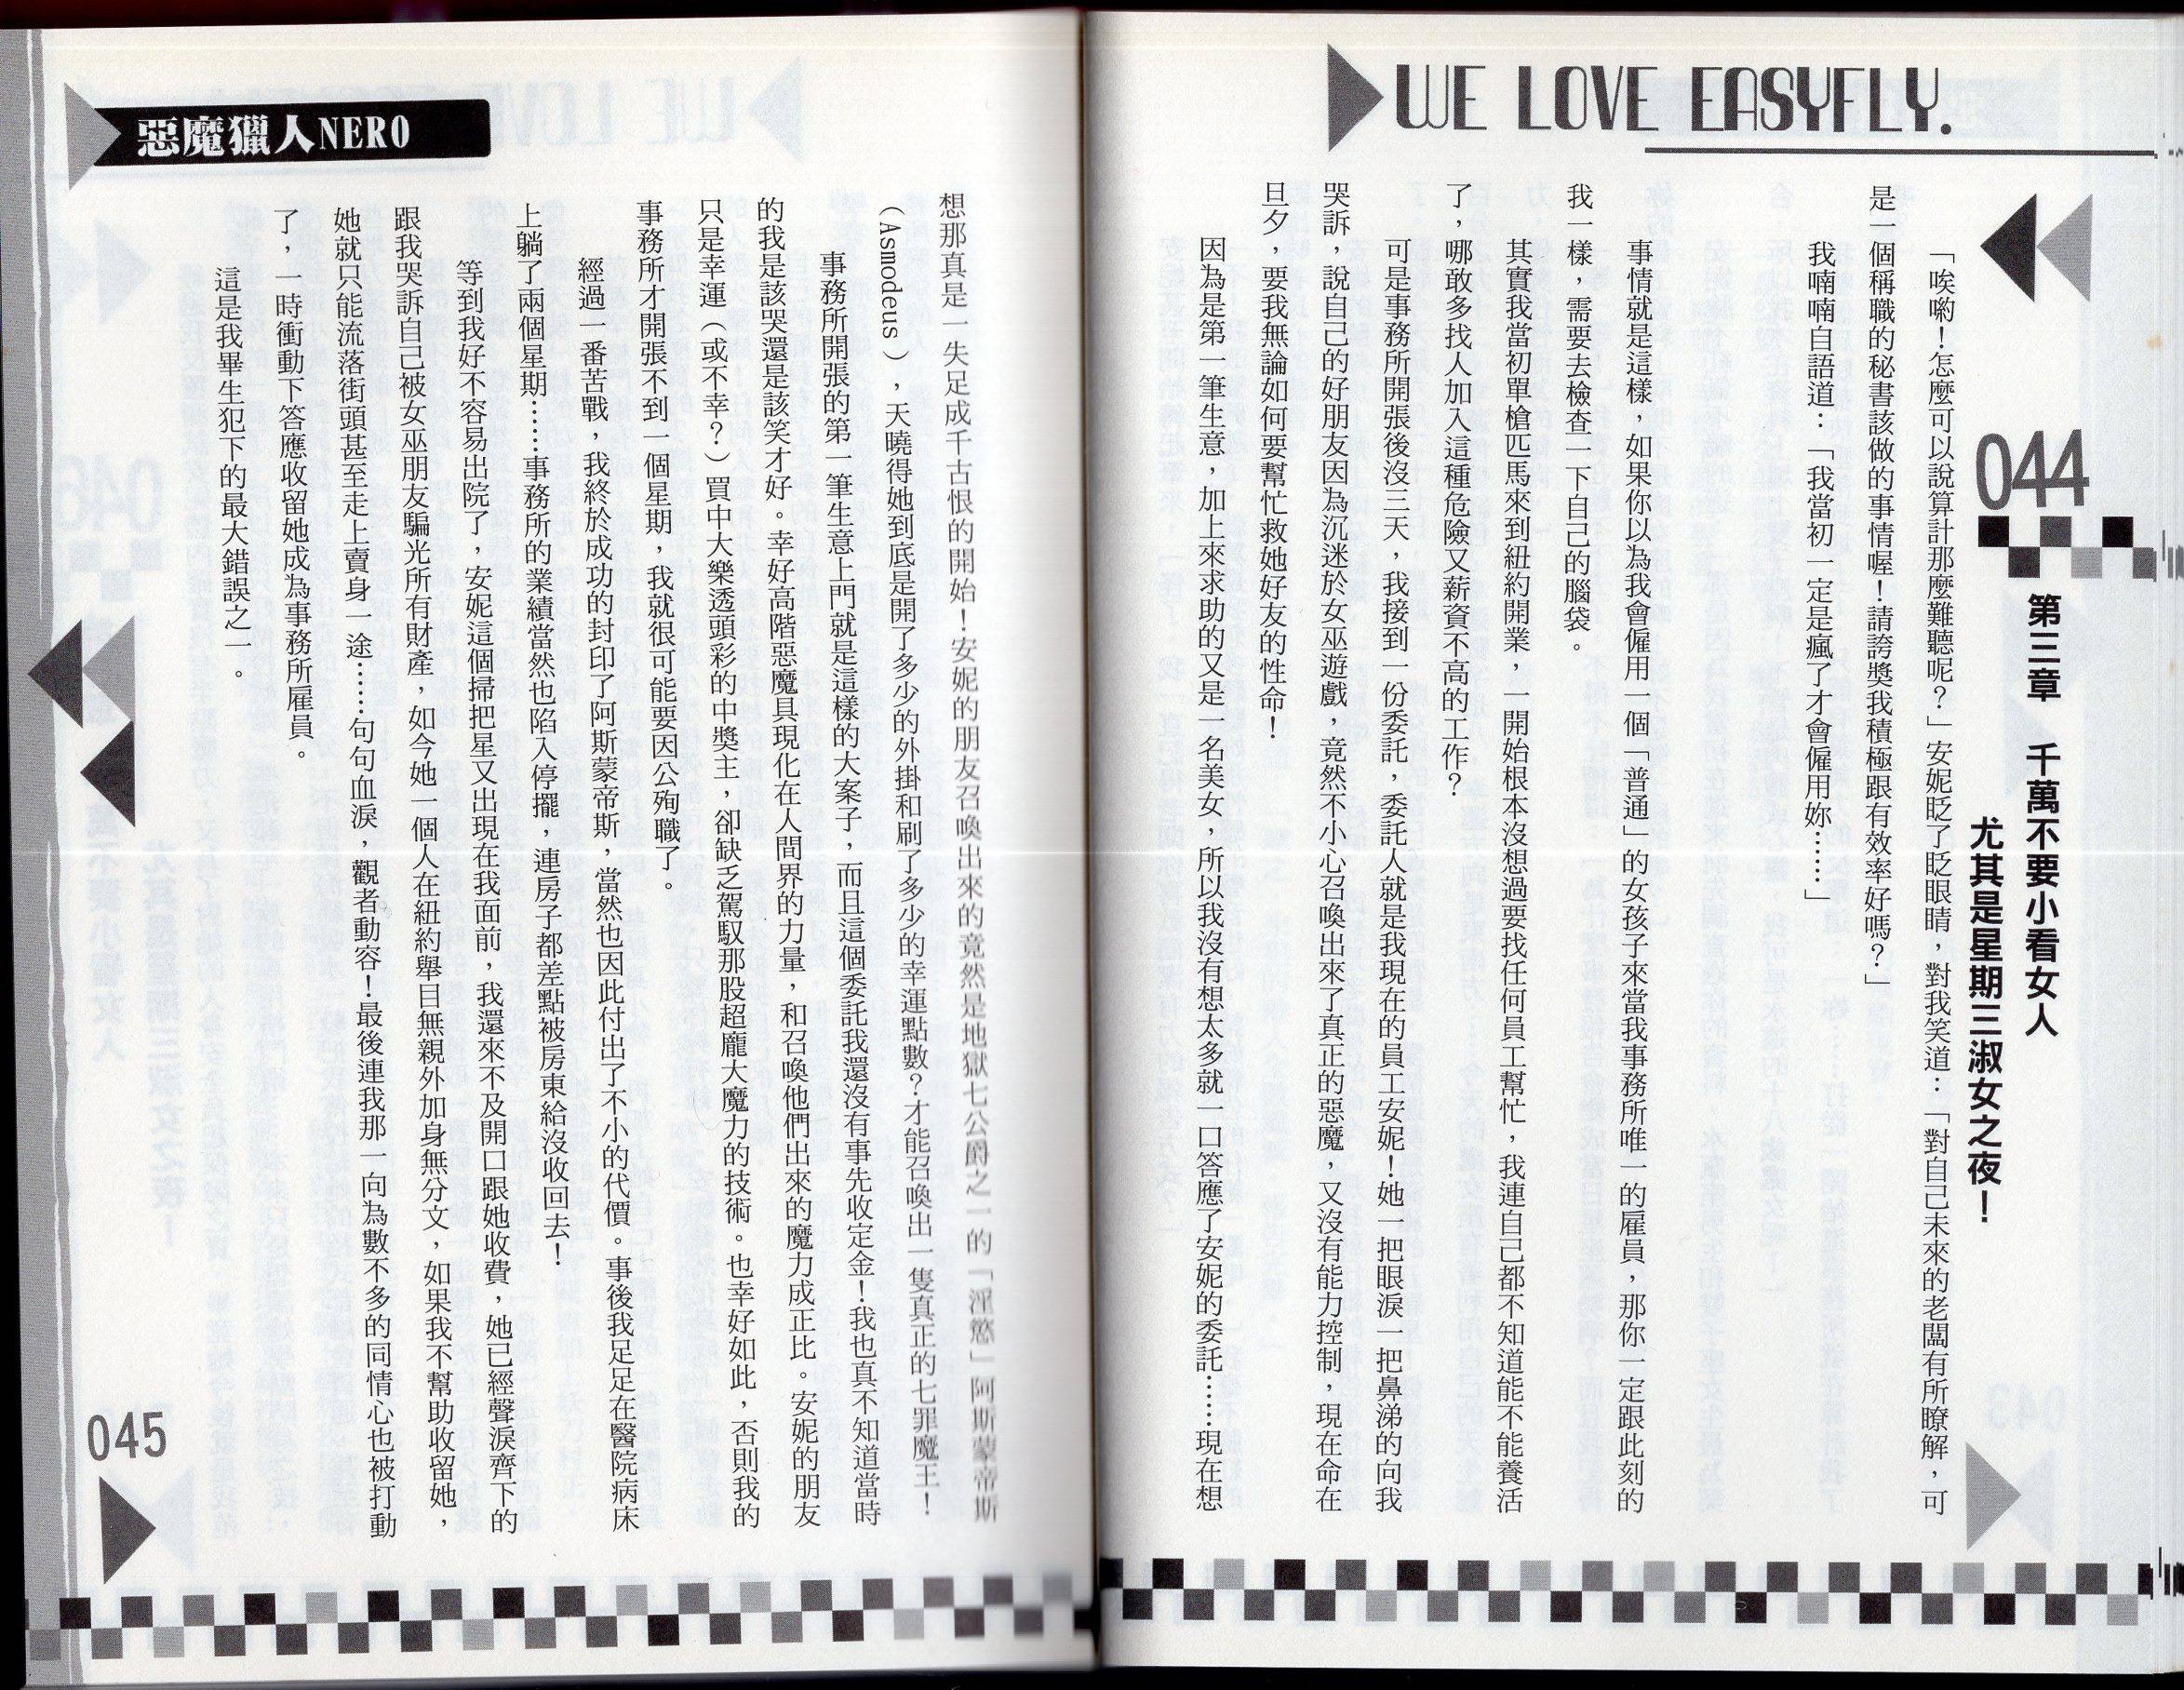 WE LOVE EASYFLY.
044
第三章　千萬不要小看女人
尤其是星期三淑女之夜！
「唉喲！怎麼可以說算計那麼難聽呢？」安妮眨了眨眼睛，對我笑道：「對自己未來的老闆有所瞭解，可
是一個稱職的秘書該做的事情喔！請誇獎我積極跟有效率好嗎？」
我喃喃自語道：「我當初一定是瘋了才會僱用妳……」
事情就是這樣，如果你以為我會僱用一個「普通」的女孩子來當我事務所唯一的雇員，那你一定跟此刻的
我一樣，需要去檢查一下自己的腦袋。
其實我當初單槍匹馬來到紐約開業，一開始根本沒想過要找任何員工幫忙，我連自己都不知道能不能養活
了，哪敢多找人加入這種危險又薪資不高的工作？
可是事務所開張後沒三天，我接到一份委託，委託人就是我現在的員工安妮！她一把眼淚一把鼻涕的向我
哭訴，說自己的好朋友因為沉迷於女巫遊戲，竟然不小心召喚出來了真正的惡魔，又沒有能力控制，現在命在
旦夕，要我無論如何要幫忙救她好友的性命！
因為是第一筆生意，加上來求助的又是一名美女，所以我沒有想太多就一口答應了安妮的委託……現在想
惡魔獵人NERO
想那真是一失足成千古恨的開始！安妮的朋友召喚出來的竟然是地獄七公爵之一的「淫慾」阿斯蒙帝斯
（Asmodeus），天曉得她到底是開了多少的外掛和刷了多少的幸運點數？才能召喚出一隻真正的七罪魔王！
事務所開張的第一筆生意上門就是這樣的大案子，而且這個委託我還沒有事先收定金！我也真不知道當時
的我是該哭還是該笑才好。幸好高階惡魔具現化在人間界的力量，和召喚他們出來的魔力成正比。安妮的朋友
只是幸運（或不幸？）買中大樂透頭彩的中獎主，卻缺乏駕馭那股超龐大魔力的技術。也幸好如此，否則我的
事務所才開張不到一個星期，我就很可能要因公殉職了。
經過一番苦戰，我終於成功的封印了阿斯蒙帝斯，當然也因此付出了不小的代價。事後我足足在醫院病床
上躺了兩個星期……事務所的業績當然也陷入停擺，連房子都差點被房東給沒收回去！
等到我好不容易出院了，安妮這個掃把星又出現在我面前，我還來不及開口跟她收費，她已經聲淚齊下的
跟我哭訴自己被女巫朋友騙光所有財產，如今她一個人在紐約舉目無親外加身無分文，如果我不幫助收留她，
她就只能流落街頭甚至走上賣身一途……句句血淚，觀者動容！最後連我那一向為數不多的同情心也被打動
了，一時衝動下答應收留她成為事務所雇員。
這是我畢生犯下的最大錯誤之一。
045